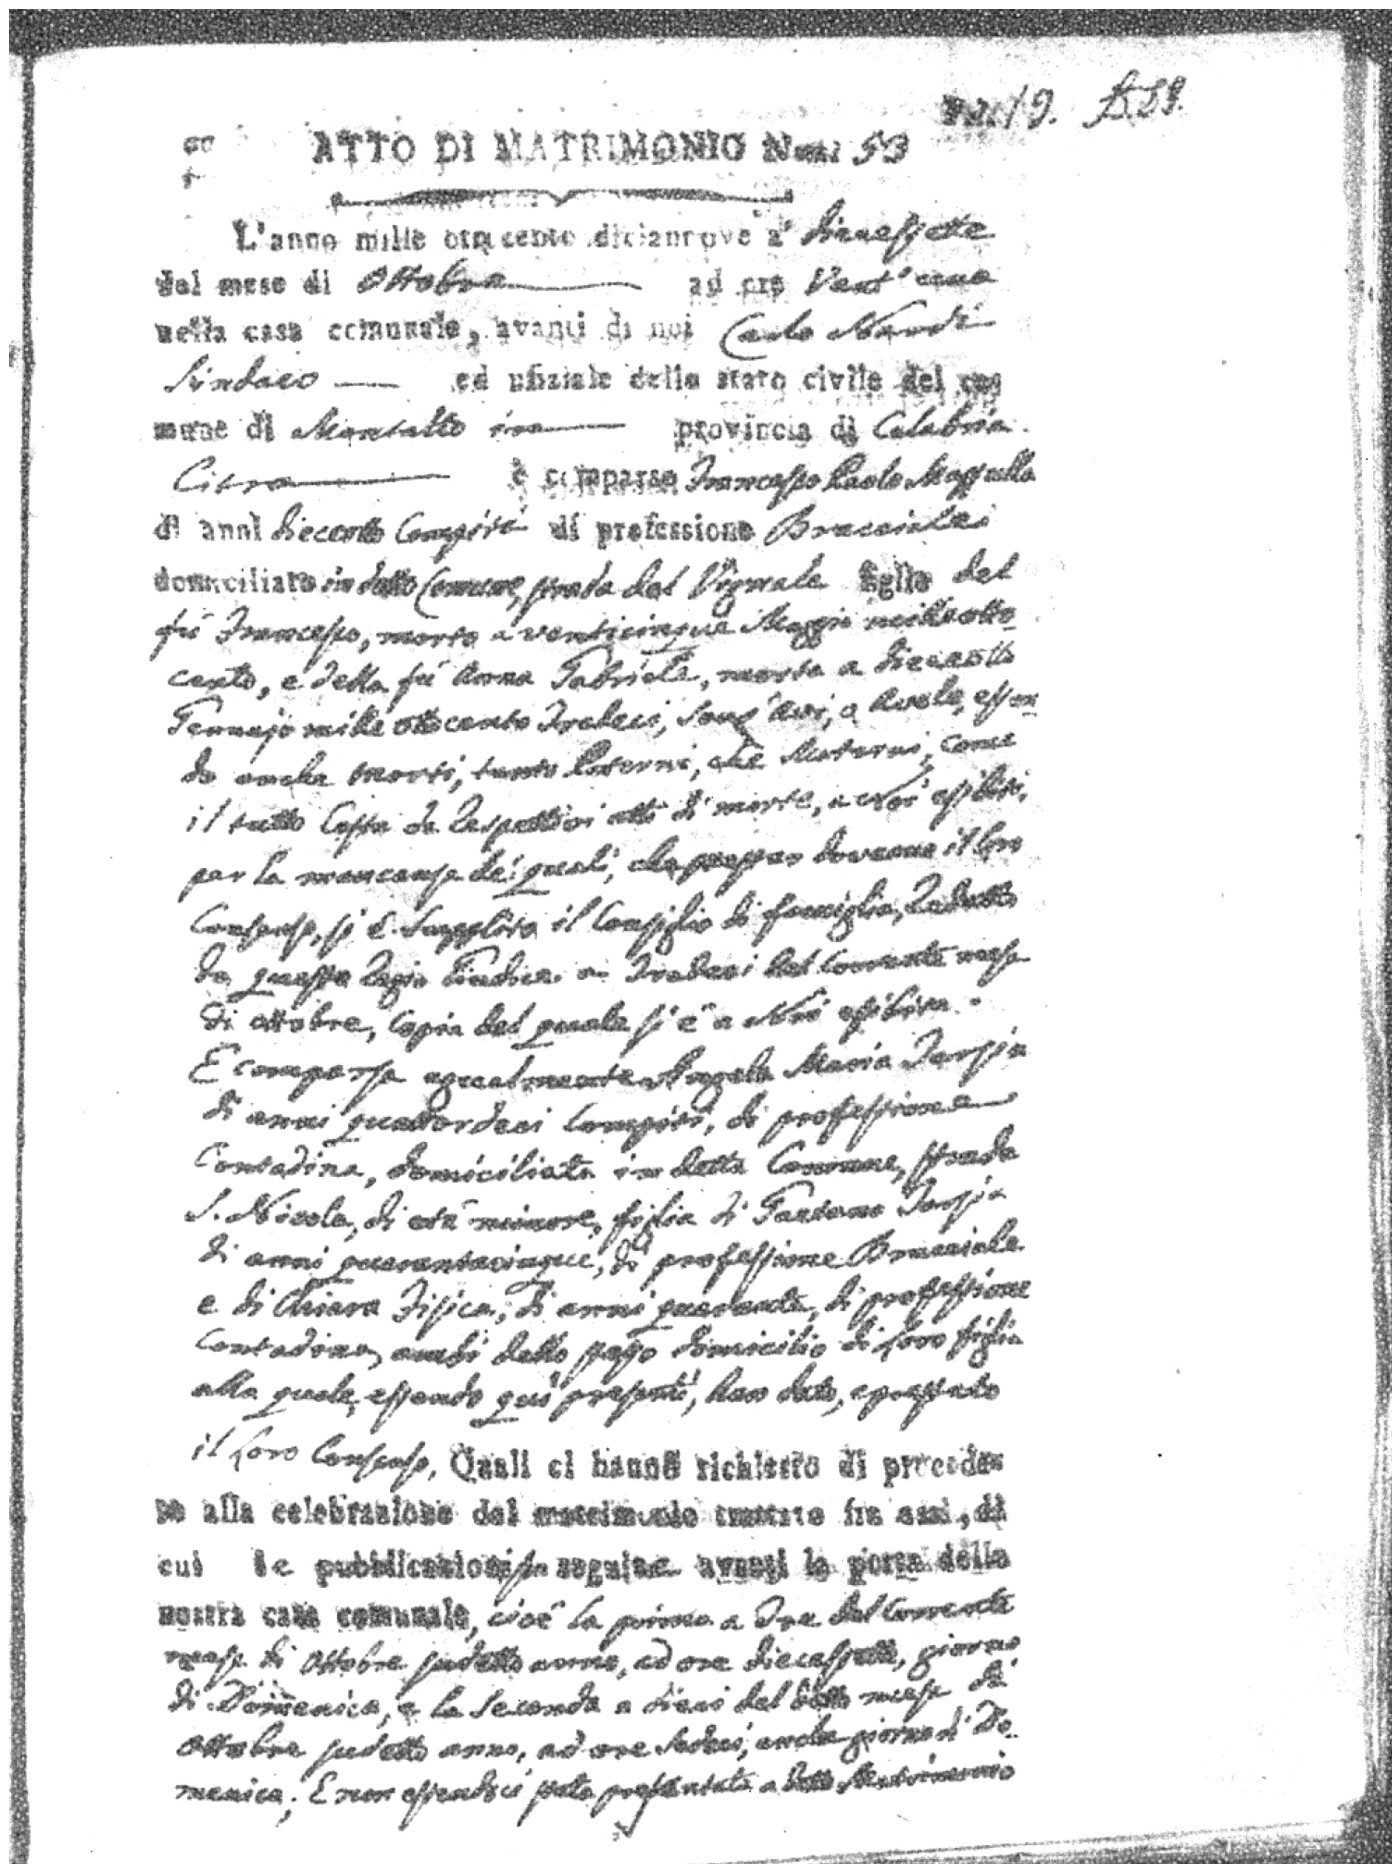 19. A 59.
ATTO DI MATRIMONIO Num. 53
L'anno mille ottocento diciannove a' diecessette
del mese di Ottobre ad ore Vent' una
nella casa comunale, avanti di noi Carlo Nardi
Sindaco ed ufiziale dello stato civile del co-
mune di Montalto in provincia di Calabria
Citra è comparso Francesco Paolo Mazzulla
di anni dieceotto Compiti di professione Bracciale
domiciliato in detto Comune, strada del Vignale figlio del
fù Francesco, morto a venticinque Maggio mille otto-
cento, e della fù Anna Gabriele, morta a dieceotto
Gennajo mille ottocento tredeci, Avi, a Avole, essen-
do anche morti, tanto Paterni, che Materni, come
il tutto Costa da respettivi atti di morte, a Noi esibiti,
per la mancanza dei quali, che prestar doveano il loro
Consenso, si è supplito il Consiglio di famiglia, redatto
da questo regio Giudice a tredeci del Corrente mese
di Ottobre, Copia del quale si è a Noi esibita.
E comparsa egualmente Angela Maria Tarsia
di anni quattordeci Compiti, di professione
Contadina, domiciliata in detta Comune, strada
S. Nicola, di età minore, figlia di Gaetano Tarsia
di anni quarantacinque, di professione Bracciale
e di Chiara Fisica, di anni quaranta, di professione
Contadina, ambi dello stesso domicilio di loro figlia
alla quale, essendo quì presenti, han dato, e prestato
il loro Consenso, Quali ci hanno richiesto di procede-
re alla celebrazione del matrimonio trattato fra essi, di
cui le pubblicazioni seguite avanti la porta della
nostra casa comunale, cioè la prima a tre del Corrente
mese di Ottobre sudetto anno, ad ore diecessette, giorno
di Domenica, e la Seconda a dieci del detto mese di
Ottobre sudetto anno, ad ore Sedeci, anche giorno di Do-
menica; E non essendoci stata presentata a detto Matrimonio